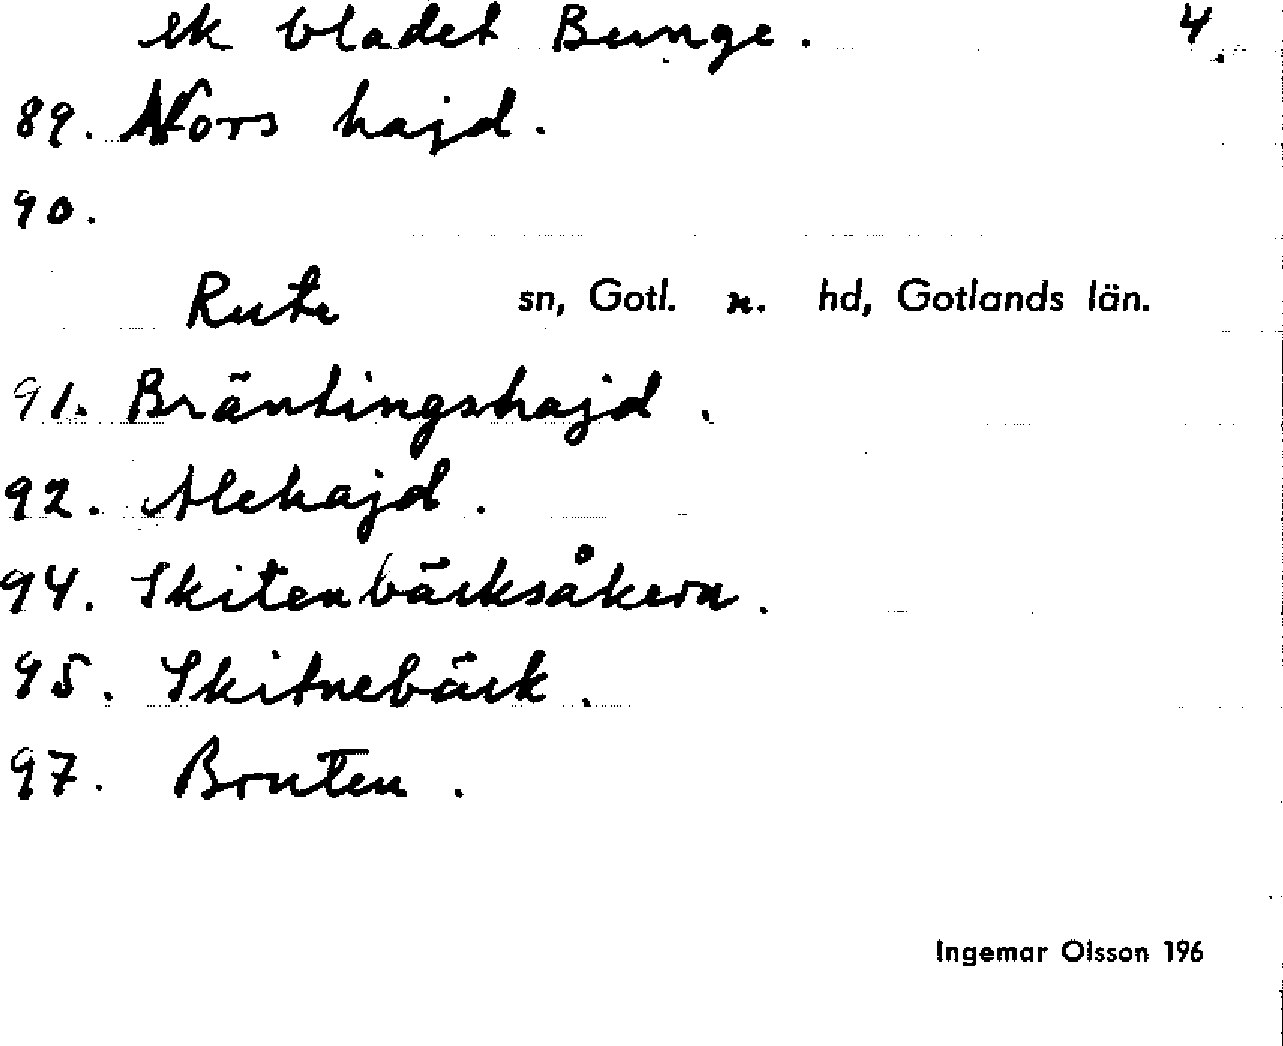 ek bladet Bunge. 4.
89. Nors hajd.
90.
Rute sn, Gotl. n. hd, Gotlands län.
91. Bräntingshajd.
92. Alehajd.
94. Skitenbäcksåkern.
95. Skitnebäck.
97. Bruten.
Ingemar Olsson 196